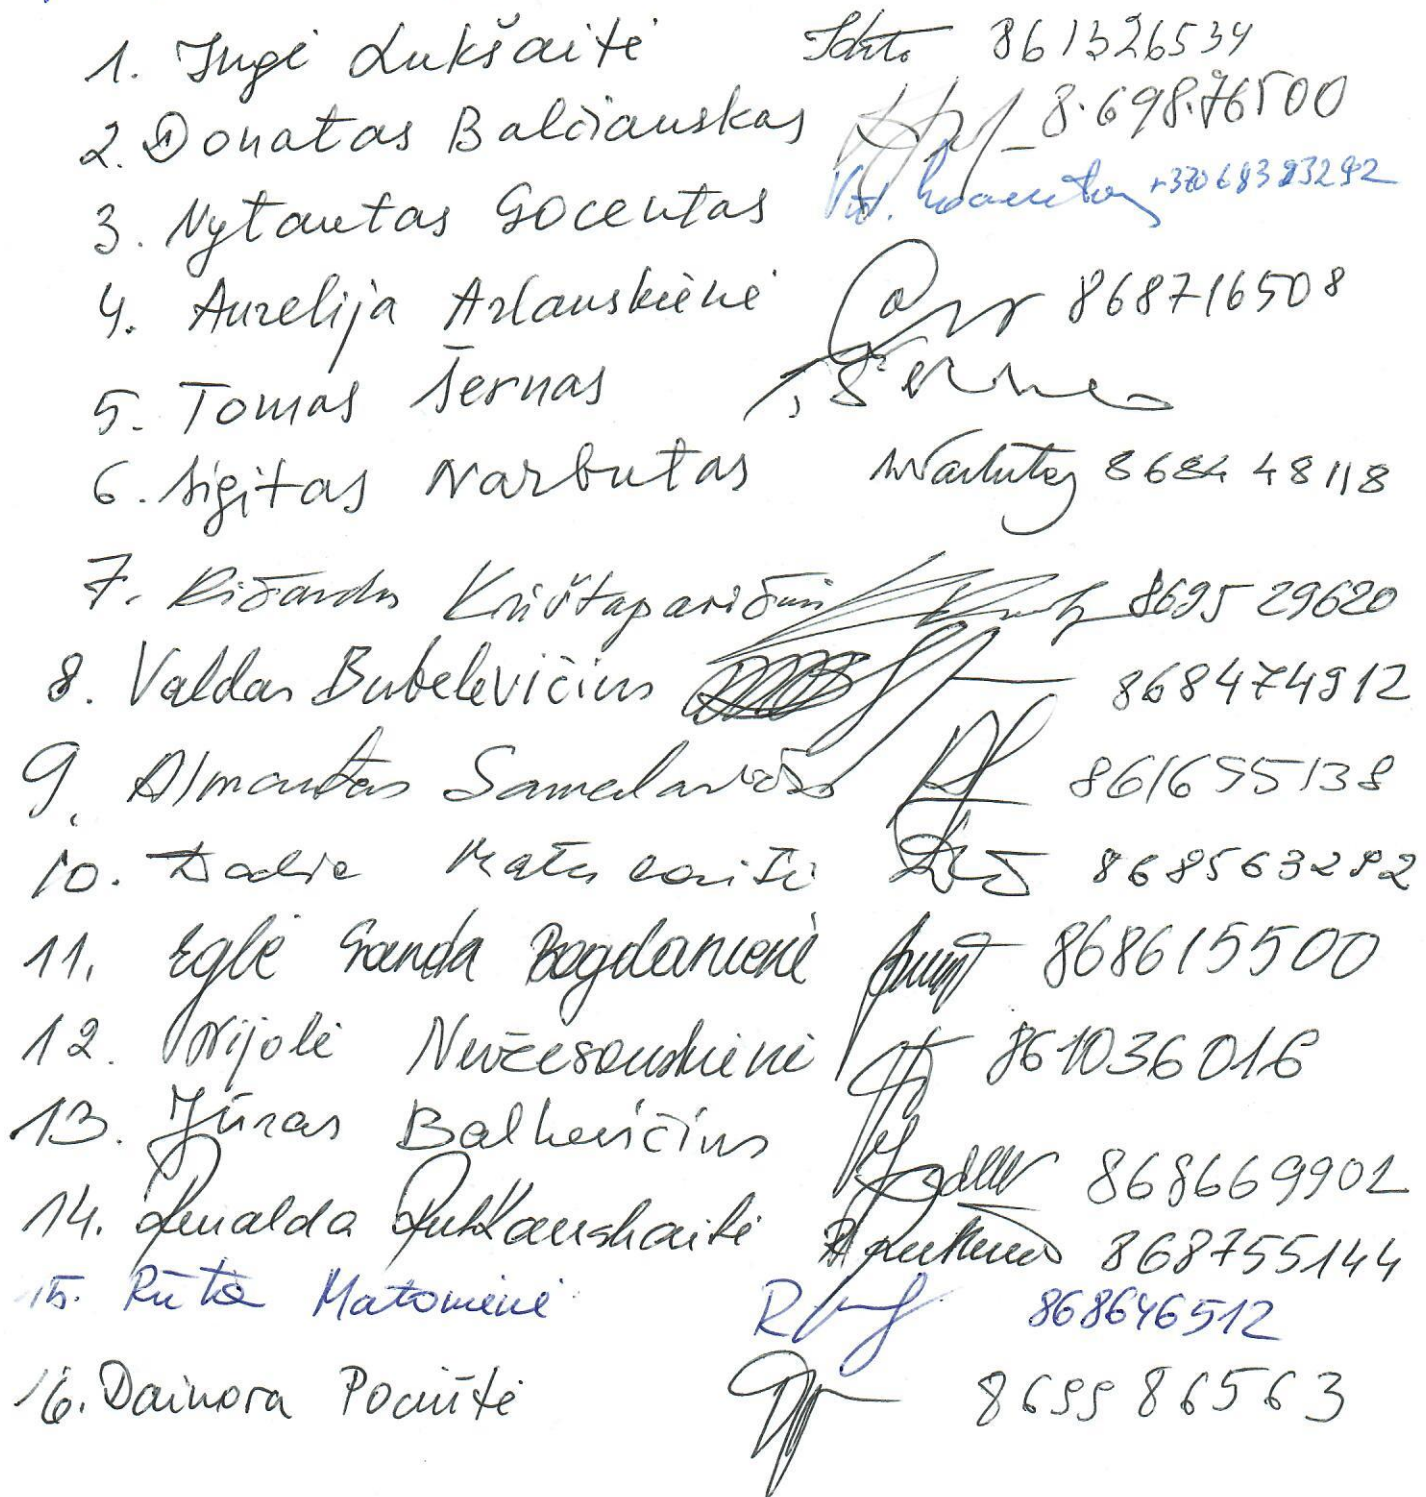 1. Ingė Lukšaitė 861326534
2. Donatas Balčiauskas 8.698.76500
3. Vytautas Gocentas +37068383292
4. Aurelija Arlauskienė 868716508
5. Tomas Šernas T. Šernas
6. Sigitas Narbutas SNarbutas 8684 48118
7. Ričardas 8695 29620
8. Valdas Bubelevičius 868474912
9. Almantas Samalavičius 861655138
10. Dalia Matulaitė 868563292
11. Eglė Ganda Bogdanienė 868615500
12. Nijolė 861036016
13. Jūras Balkevičius 868669902
14. Renalda Rutkauskaitė 868755144
15. Rūta Matonienė 868646512
16. Dainora Pociūtė 8699 86563